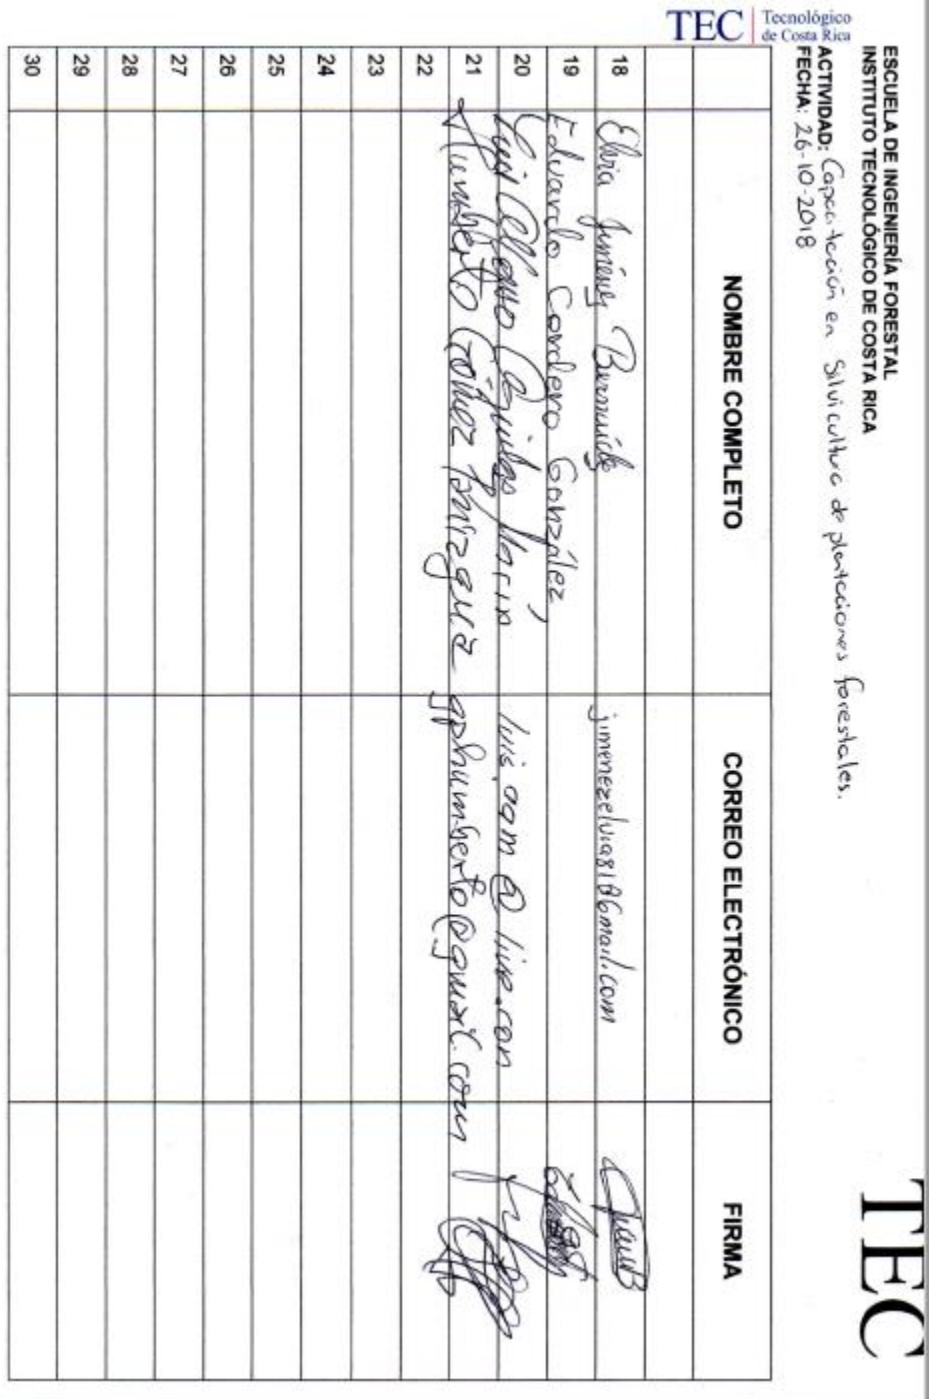 TEC Tecnológico
de Costa Rica
TEC
ESCUELA DE INGENIERÍA FORESTAL
INSTITUTO TECNOLÓGICO DE COSTA RICA
ACTIVIDAD: Capacitación en Silvicultura de plantaciones forestales.
FECHA: 26-10-2018
NOMBRE COMPLETO CORREO ELECTRÓNICO FIRMA
18 Elvia Jiménez Bermúdez jimenezelvia81@Gmail.com
19 Eduardo Cordero González
20 Luis Marín luis.aqm@live.con
21 Humberto Gómez gphumberto@gmail.com
22
23
24
25
26
27
28
29
30